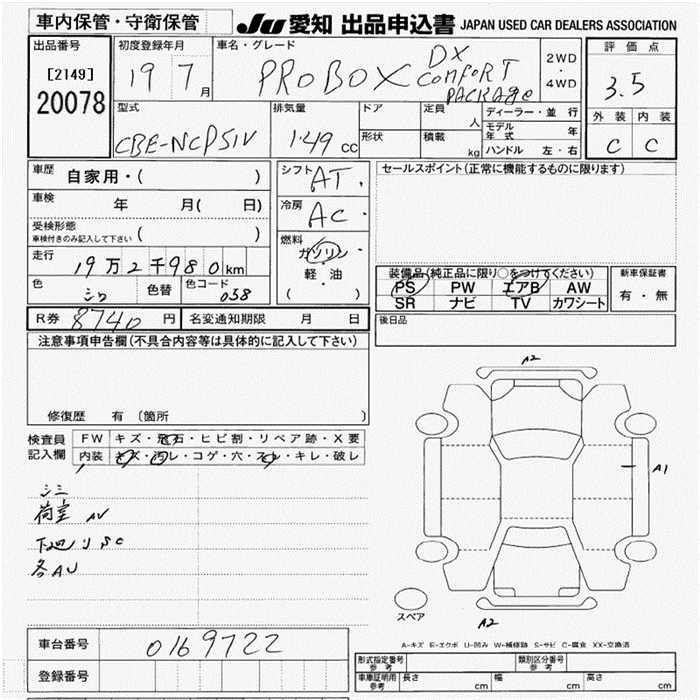 車内保管・守衛保管
JU 愛知 出品申込書 JAPAN USED CAR DEALERS ASSOCIATION
出品番号
[2149]
20078
初度登録年月
19 7 月
車名・グレード
PROBOX DX
COMFORT
PACKAGE
2WD
・
4WD
評価点
3.5
外装 内装
C C
型式
CBE-NCP51V
排気量
1.49 cc
ドア
形状
定員
人
積載
kg
ディーラー・並行
モデル年式 年
ハンドル 左・右
車歴 自家用・( )
車検 年 月( 日)
受検形態
車検付きのみ記入して下さい ( )
走行
19万2千980km
色 シロ 色替 色コード 058
シフト AT
冷房 AC
燃料
ガソリン
・
軽・油
( ・ )
セールスポイント(正常に機能するものに限ります)
装備品(純正品に限り○をつけてください)
PS PW エアB AW
SR ナビ TV カワシート
新車保証書
有・無
R券 8740 円 名変通知期限 月 日
後日品
注意事項申告欄(不具合内容等は具体的に記入して下さい)
修復歴 有 (箇所 )
検査員
記入欄
FW キズ・飛石・ヒビ割・リペア跡・X要
内装 キズ・汚レ・コゲ・穴・スレ・キレ・破レ
シミ
荷室 AV
下廻リ SC
各AU
A2
A1
A2
スペア
A-キズ E-エクボ U-凹み W-補修跡 S-サビ C-腐食 XX-交換済
車台番号 0169722
登録番号
形式指定番号
参考
類別区分番号
参考
車庫証明用
参考
長さ cm 幅 cm 高さ cm